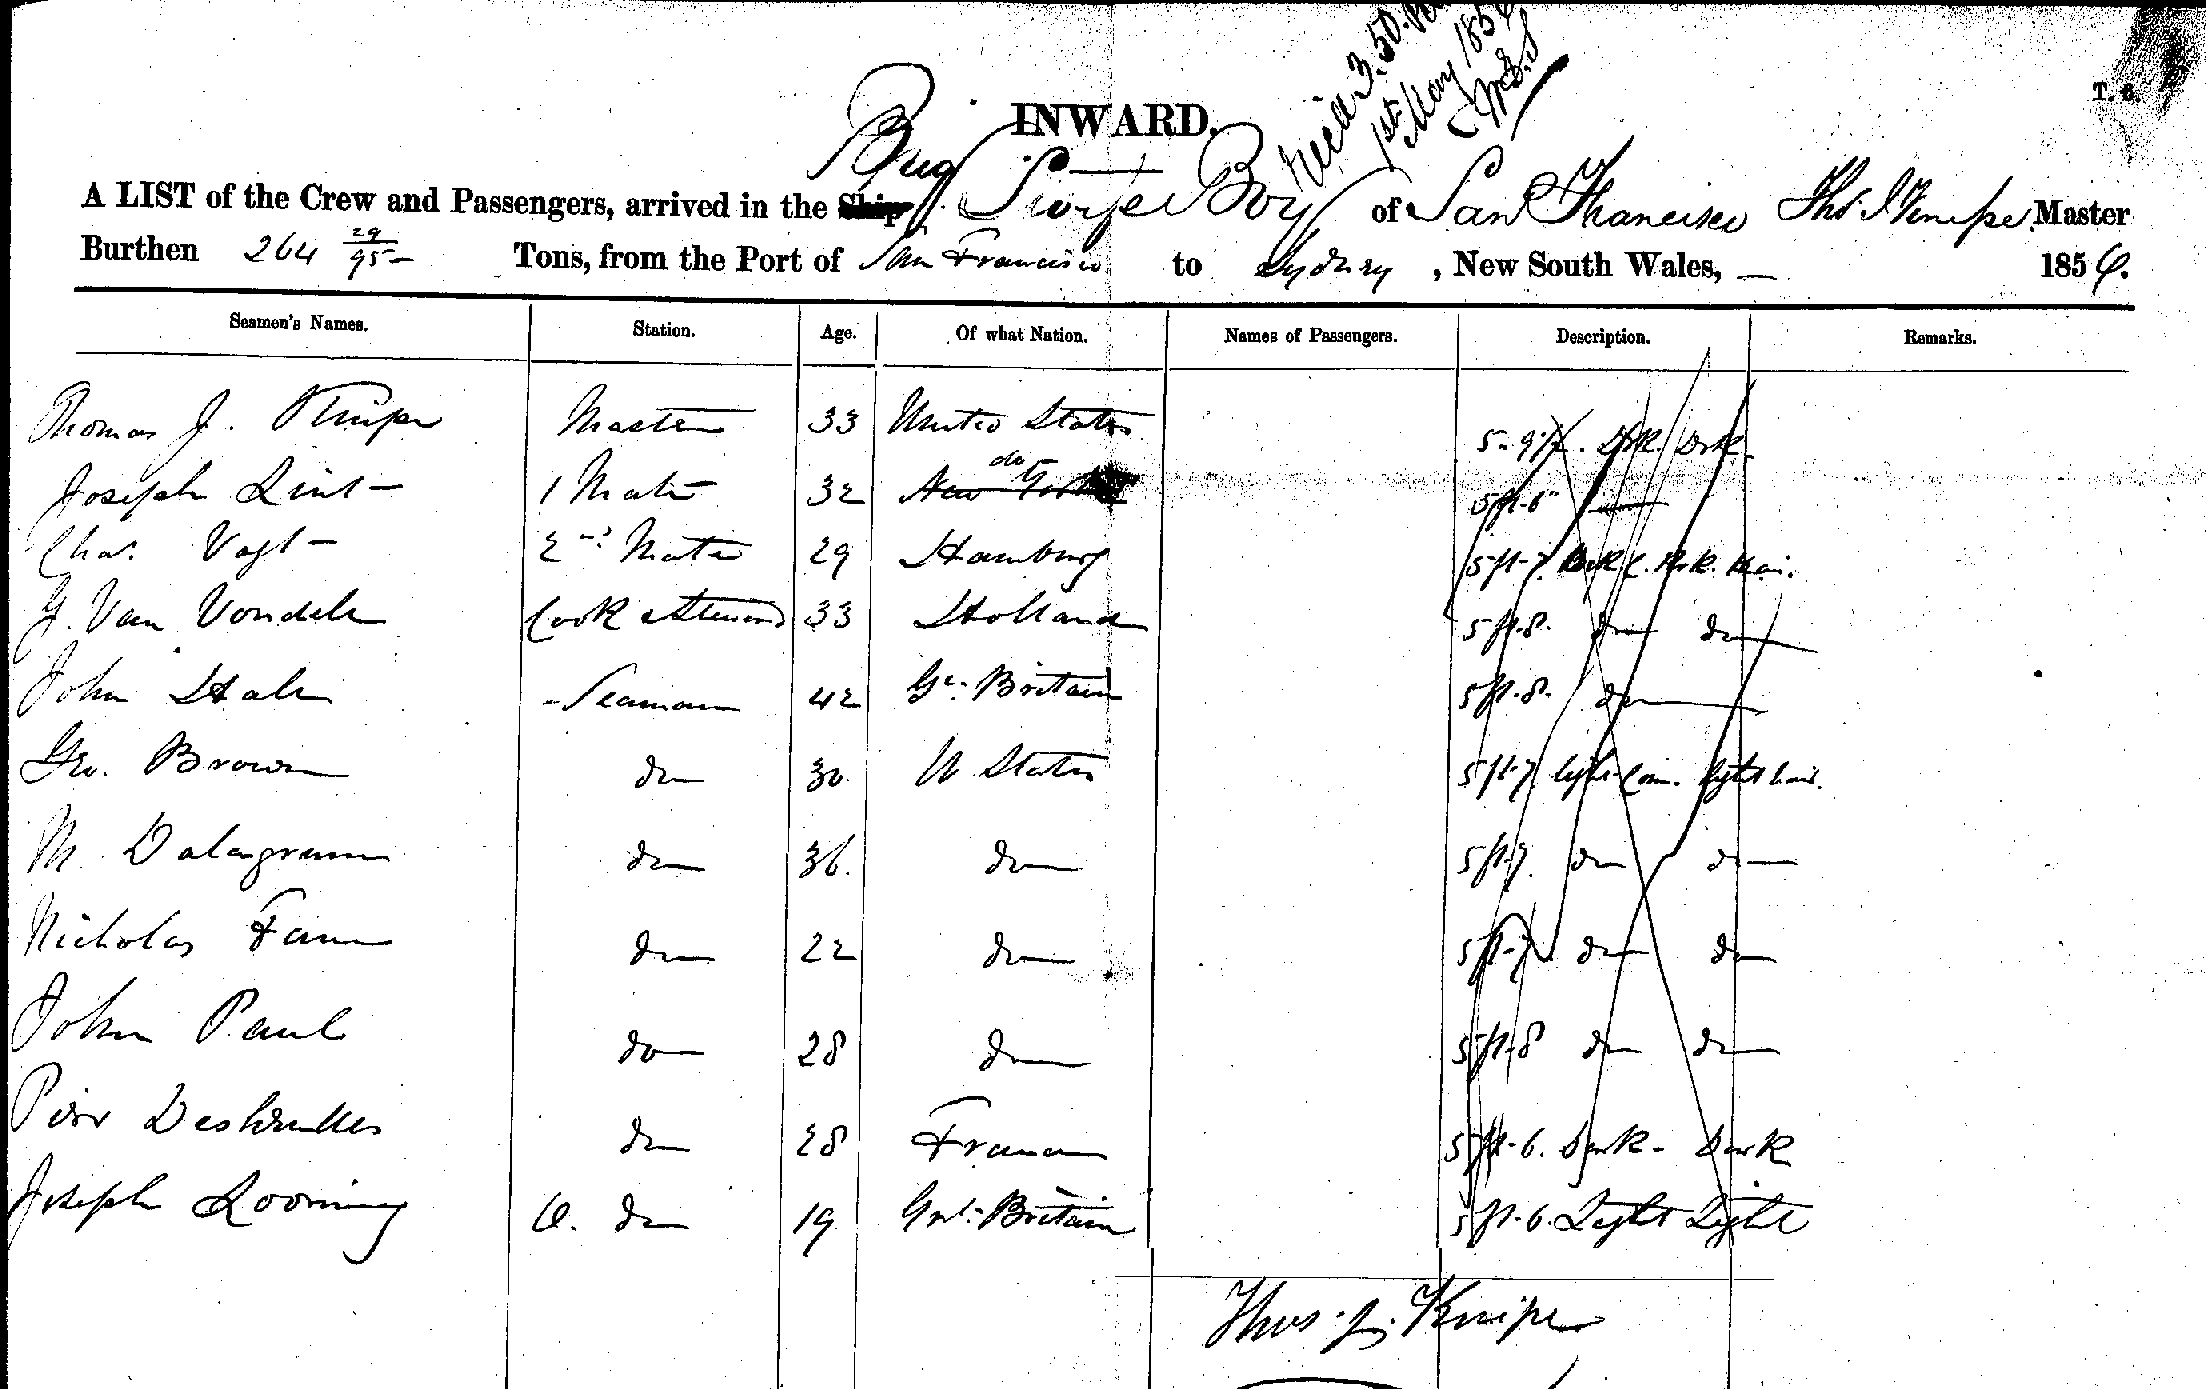 Rec'd 3.50. PM
1st May 1856
INWARD.
Brig
A LIST of the Crew and Passengers, arrived in the Ship Boy of San Francisco Thos J Knipe Master
Burthen 264 29/95 Tons, from the Port of San Francisco to Sydney, New South Wales, — 1856.
Seamen's Names. Station. Age. Of what Nation. Names of Passengers. Description. Remarks.
Thomas J. Knipe Master 33 United States 5-9 Drk. Drk.
do
Joseph Lint 1 Mate 32 New York 5 ft. 6
Chas. Vogt 2nd Mate 29 Hamburg 5 ft-7. Dark C. Drk. Hair.
J. Van Vondele Cook & Steward 33 Holland 5 ft. 8. do do
John Hale Seaman 42 Gt. Britain 5 ft. 8. do
Geo. Brown do 30 U States 5 ft-7. light Com. light hair.
M. Dalagrum do 36. do 5 ft-7. do do
Nicholas Fann do 22 do 5 ft-7 do do
John Paul do 28 do 5 ft-8 do do
Pier do 28 France 5 ft-6. Dark - Dark
Joseph Looming O. do 19 Grt. Britain 5 ft-6. Light Light
Thos. J. Knipe